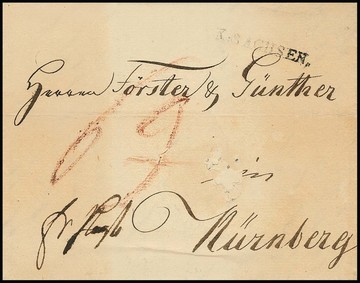 L. SACHSEN.
Herren Förster & Günther
in
Nürnberg